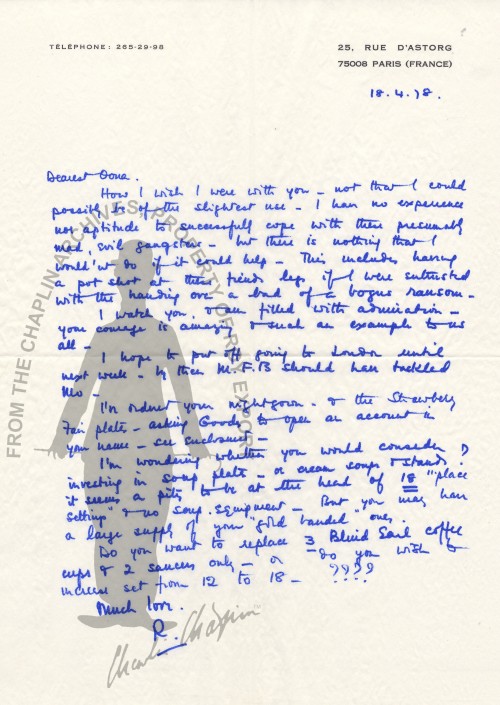 TÉLÉPHONE: 265-29-98
25, RUE D'ASTORG
75008 PARIS (FRANCE)
18.4.78.
Dearest Oona.
How I wish I were with you – not that I could
possibly be of the slightest use – I have no experience
nor aptitude to successfully cope with these presumably
mad, evil gangsters – but there is nothing that I
would'nt do if it could help – This includes having
a pot shot at these fiends legs if I were entrusted
with the handing over a load of a bogus ransom –
I watch you & am filled with admiration –
your courage is amazing & such an example to us
all –
I hope to put off going to London until
next week – by then M.F.B should have tackled
I'm ordered your nightgown – & the Strawberry
Fair plate – asking Goods to open an account in
you name – see enclosure –
I'm wondering whether you would consider
investing in soup plates – or cream soups & stands ?
it seems a pity to be at the head of 18 "place
settings" & no soup equipment – But you may have
a large supply of your "gold banded" ones.
Do you want to replace 3 Blind Earl coffee
cups & 2 saucers only – or do you wish to
increase set from 12 to 18 – ????
Much love.
R.
FROM THE CHAPLIN ARCHIVES, PROPERTY OF ROY EXPORT
Charlie Chaplin